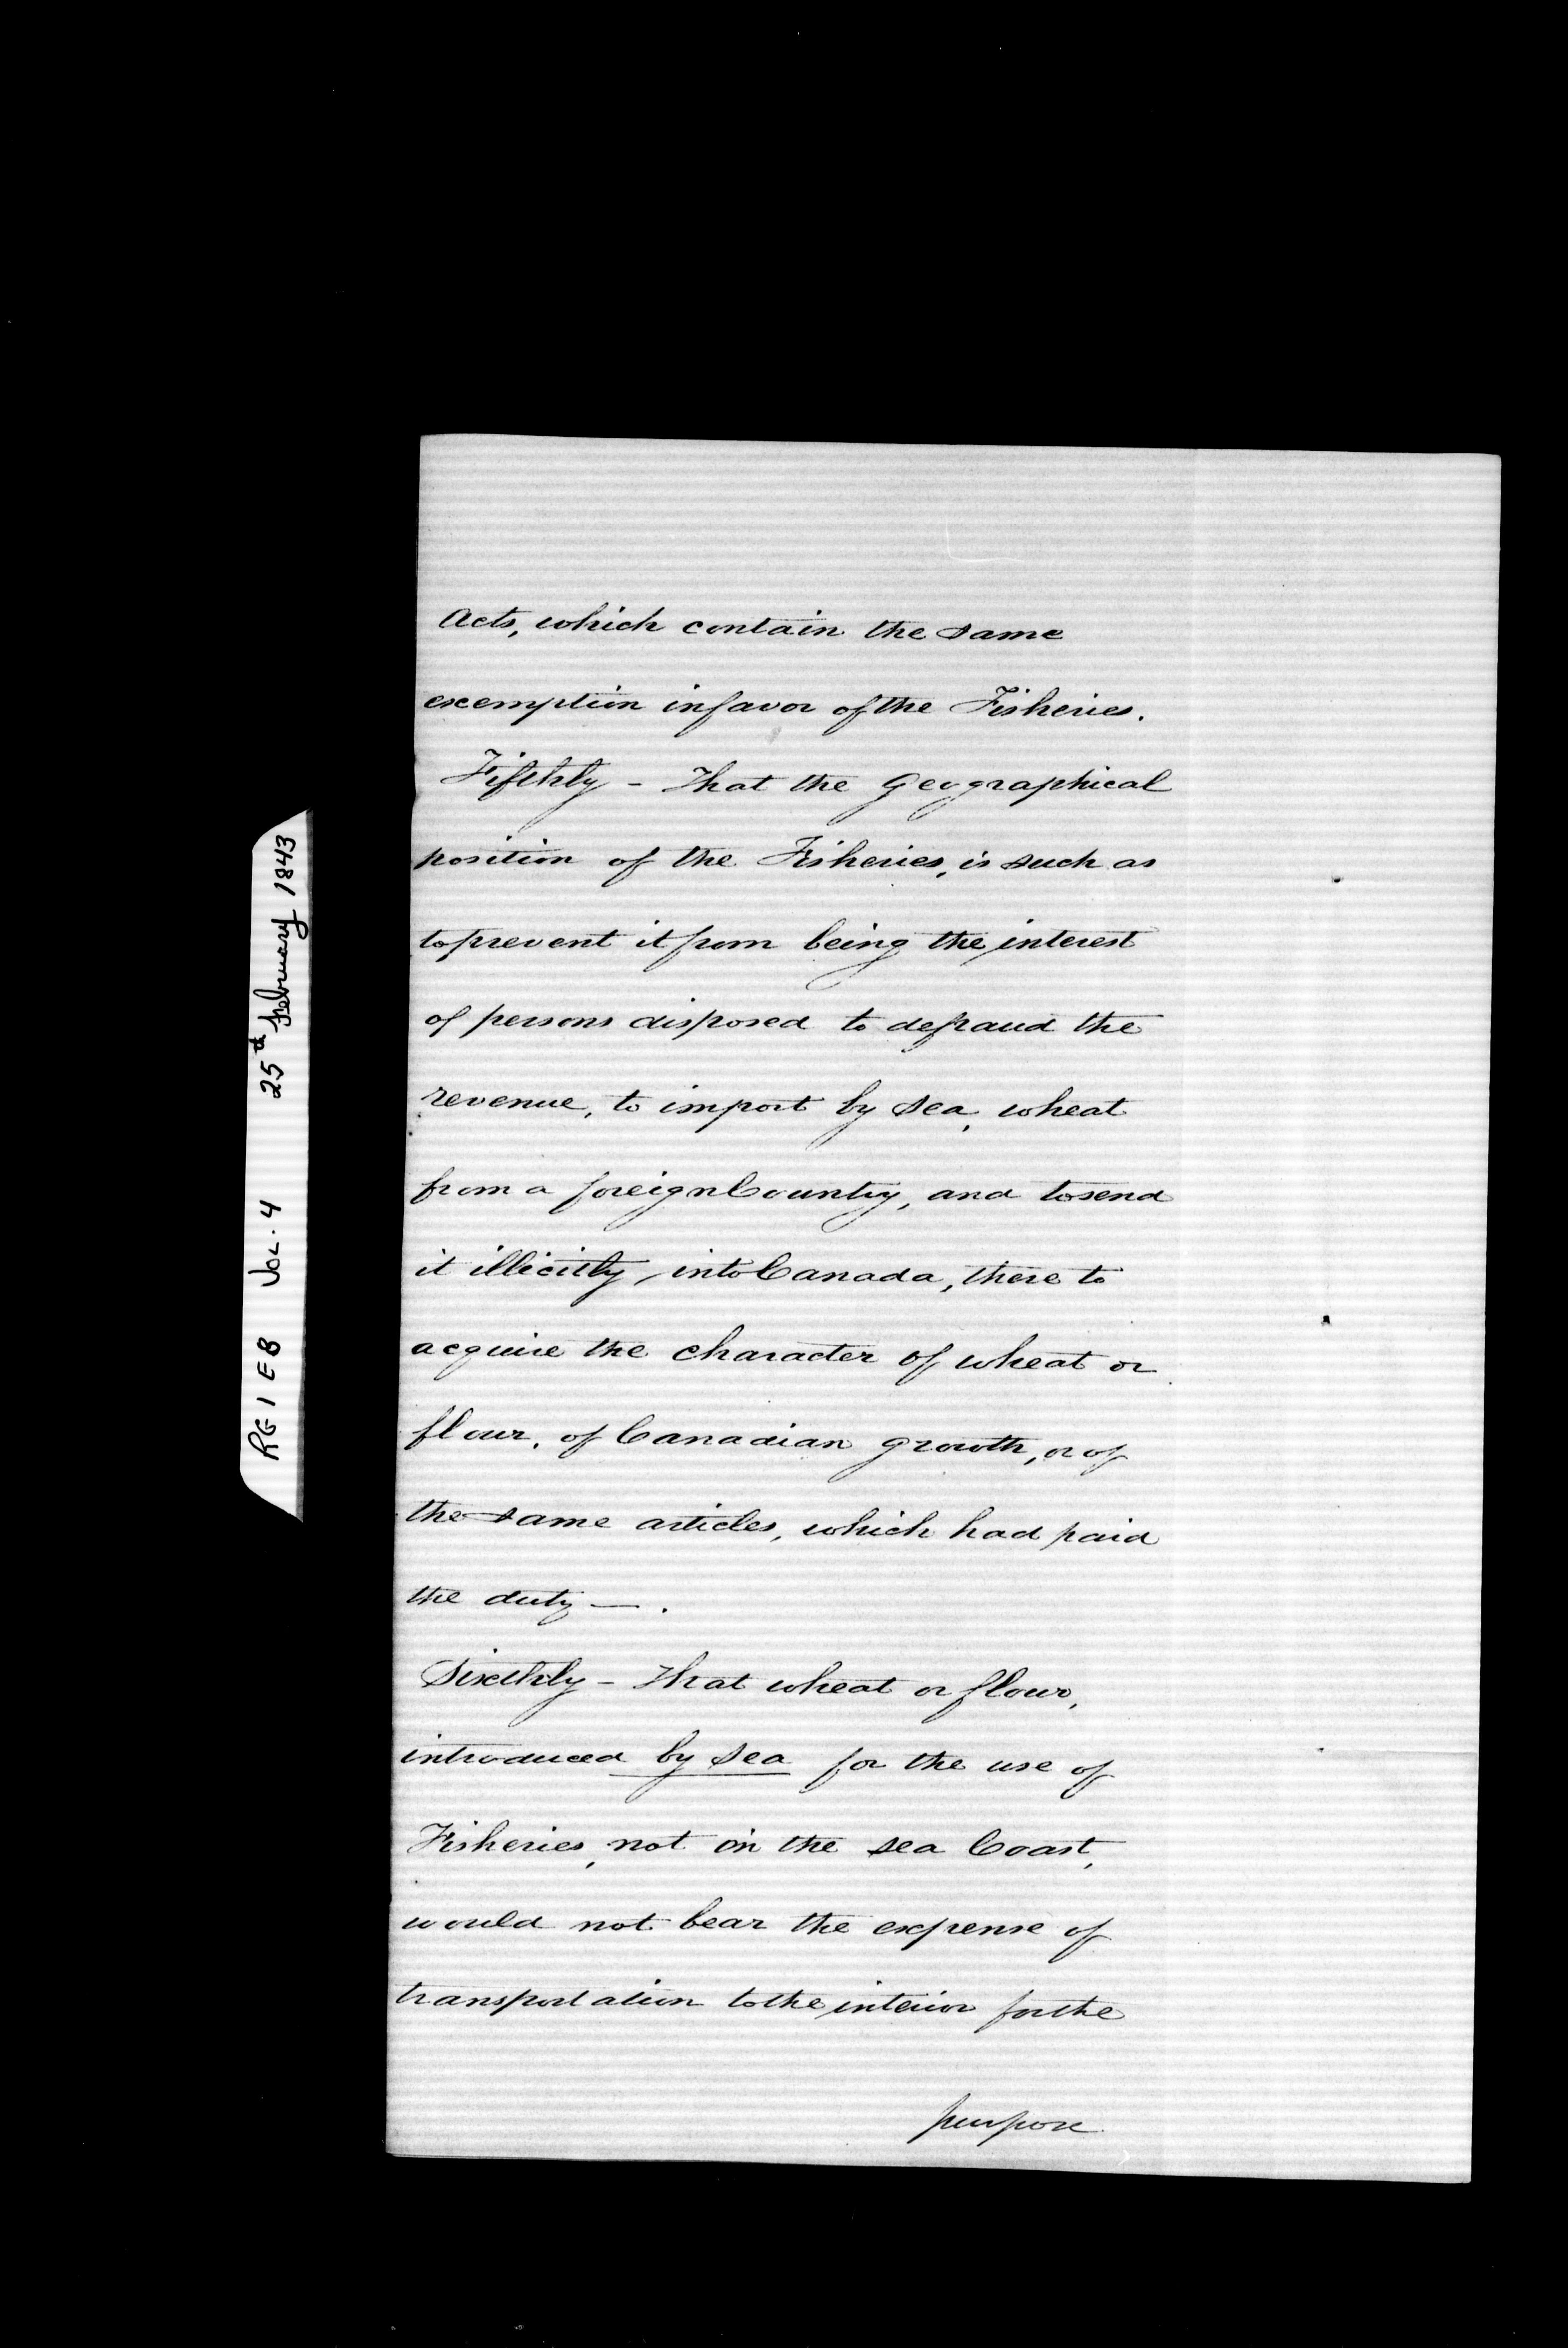 RG 1 E 8 Vol. 4 25th February 1843
Acts, which contain the same
exemption in favor of the Fisheries.
Fifthly - That the Geographical
position of the Fisheries, is such as
to prevent it from being the interest
of persons disposed to defraud the
revenue, to import by sea, wheat
from a foreign Country, and to send
it illicitly into Canada, there to
acquire the character of wheat or
flour, of Canadian growth, or of
the same articles, which had paid
the duty — .
Sixthly - That wheat or flour,
introduced by sea for the use of
Fisheries, not on the sea Coast,
would not bear the expense of
transportation to the interior for the
purpose